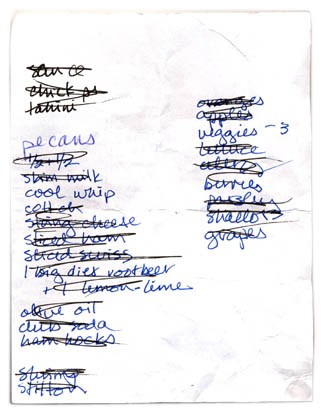 sauce
chick ps
tahini
pecans
1/2 + 1/2
skim milk
cool whip
string cheese
sliced ham
sliced swiss
1 big diet rootbeer
+ 1 lemon-lime
olive oil
club soda
ham hocks
stilton
oranges
apples
veggies - 3
lettuce
celery
berries
parsley
shallots
grapes